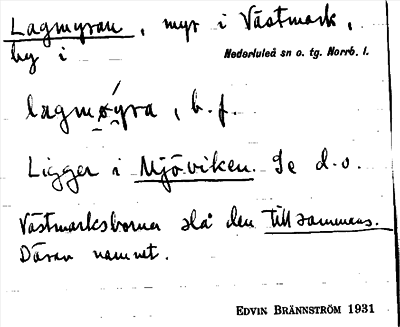 Lagmyran, myr i Västmark,
by i Nederluleå sn o. tg. Norrb. l.
lagmø̀yra, b. f.
Ligger i Mjöviken. Se d. o.
Västmarksborna slå den tillsammans.
Därav namnet.
EDVIN BRÄNNSTRÖM 1931